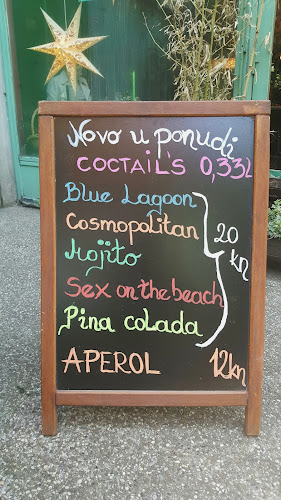 Novo u ponudi
COCTAIL'S 0,33L
Blue Lagoon
Cosmopolitan
Mojito
Sex on the beach
Pina colada
20 kn
APEROL 12kn